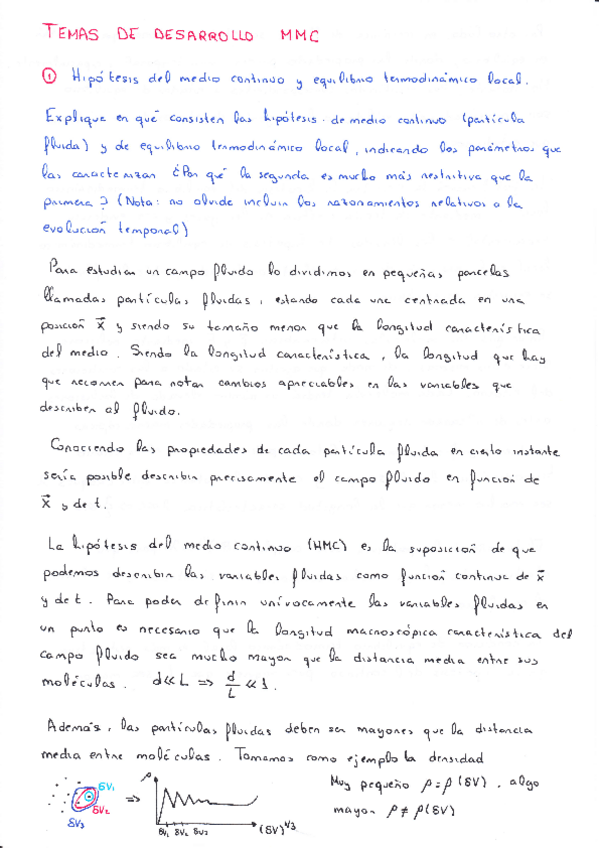 TEMAS DE DESARROLLO MMC
① Hipótesis del medio continuo y equilibrio termodinámico local.
Explique en qué consisten las hipótesis de medio continuo (partícula
fluida) y de equilibrio termodinámico local, indicando los parámetros que
las caracterizan ¿Por qué la segunda es mucho más restritiva que la
primera? (Nota: no olvide incluir los razonamientos relativos a la
evolución temporal)
Para estudiar un campo fluido lo dividimos en pequeñas parcelas
llamadas partículas fluidas, estando cada una centrada en una
posición x⃗ y siendo su tamaño menor que la longitud característica
del medio. Siendo la longitud característica, la longitud que hay
que recorrer para notar cambios apreciables en las variables que
describen al fluido.
Conociendo las propiedades de cada partícula fluida en cierto instante
sería posible describir precisamente el campo fluido en función de
x⃗ y de t.
La hipótesis del medio continuo (HMC) es la suposición de que
podemos describir las variables fluidas como función continua de x⃗
y de t. Para poder definir unívocamente las variables fluidas en
un punto es necesario que la longitud macroscópica característica del
campo fluido sea mucho mayor que la distancia media entre sus
moléculas. d<<L => d/L <<1.
Además, las partículas fluidas deben ser mayores que la distancia
media entre moléculas. Tomamos como ejemplo la densidad
δV₁
δV₂
δV₃
=>
ρ
δV₁ δV₂ δV₃
(δV)^1/3
Muy pequeño ρ=ρ(δV), algo
mayor ρ≠ρ(δV)